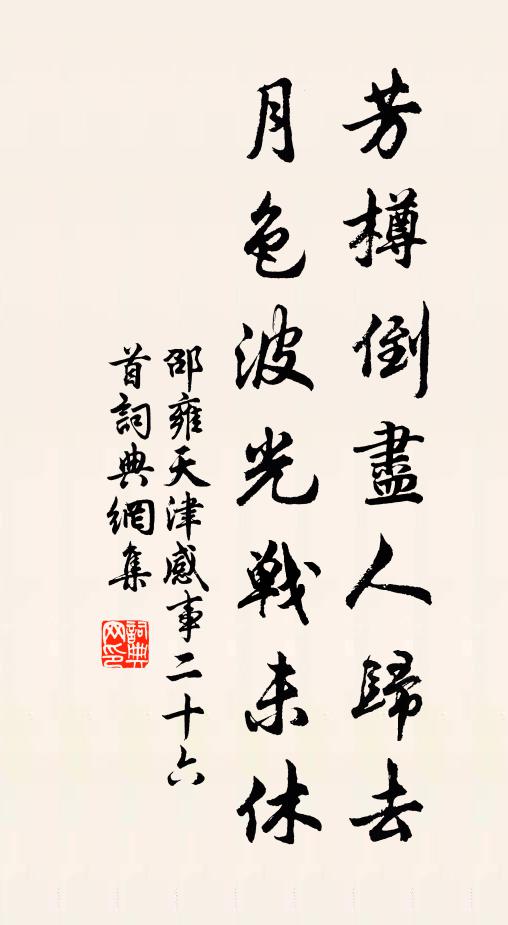 芳樽倒盡人歸去
月色波光戰未休
邵雍天津感事二十六
首詞典網集
詞典网印